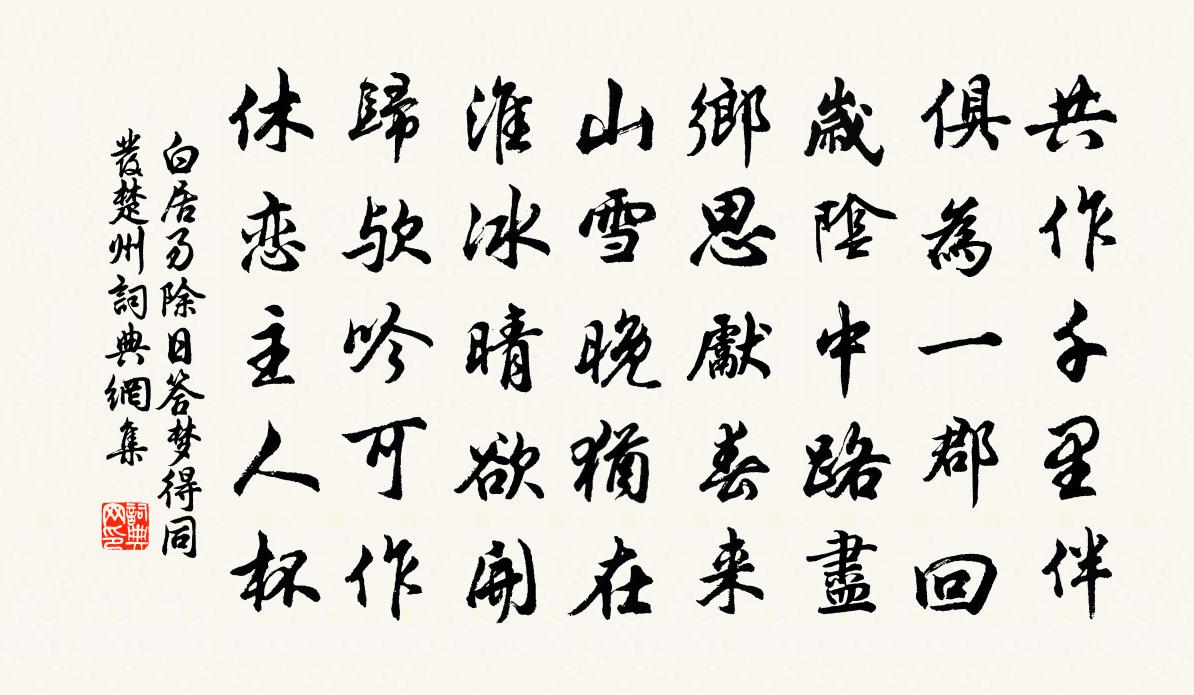 共作千里伴
俱為一郡回
歲陰中路盡
鄉思獻春来
山雪晚猶在
淮冰晴欲開
歸欤吟可作
休恋主人杯
白居易除日答梦得同
發楚州詞典網集
詞典
网印